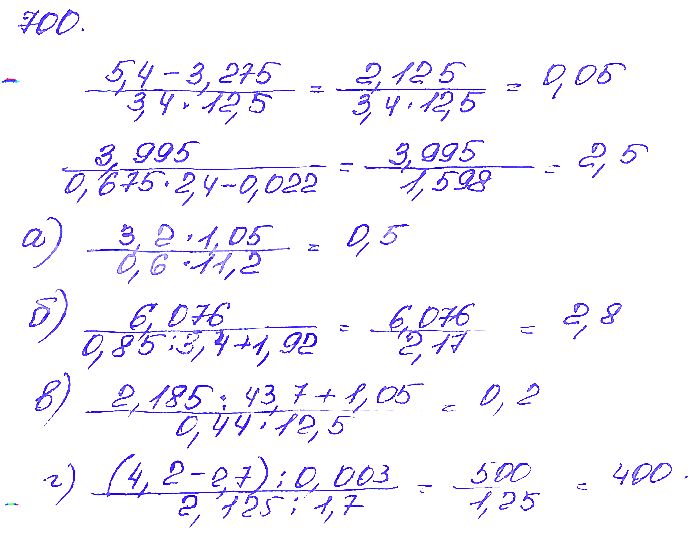 700.
5,4 - 3,275 / 3,4 · 12,5 = 2,125 / 3,4 · 12,5 = 0,05
3,995 / 0,675 · 2,4 - 0,022 = 3,995 / 1,598 = 2,5
а) 3,2 · 1,05 / 0,6 · 11,2 = 0,5
б) 6,076 / 0,85 : 3,4 + 1,92 = 6,076 / 2,17 = 2,8
в) 2,185 : 43,7 + 1,05 / 0,44 · 12,5 = 0,2
г) (4,2 - 2,7) : 0,003 / 2,125 : 1,7 = 500 / 1,25 = 400.